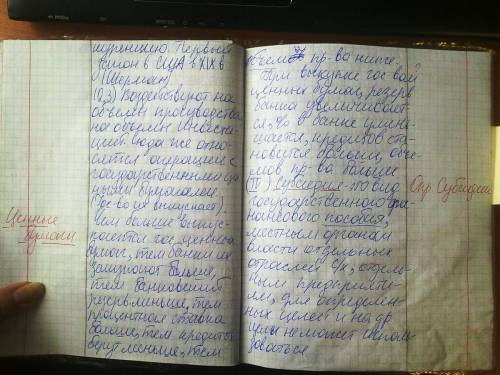 Первый
закон в США в XIX в
(Шерман)
2) Воздействуют на
объемы производства
на объемы инвести-
ций. Сюда же отно-
сятся операции с
государственными цен-
ными бумагами.
(гос-во их выпускает).
Чем больше выпус-
кается гос. ценных
бумаг, тем банки их
больше,
тем банковский
резерв меньше, тем
процентная ставка
больше, тем кредитов
берут меньше, тем
Ценные
бумаги
объем пр-ва ниже.
При выкупке гос-вом
ценных бумаг, резерв
банка увеличивает-
ся, % в банке умень-
шается, кредитов ста-
новится больше, объе-
мов пр-ва больше
Субсидия - это вид
государственного фи-
нансового пособия,
местным органам
власти отдельных
отраслей отдель-
ным предприяти-
ям, для определен-
ных целей и на др.
цели не может исполь-
зоваться
Опр. Субсидии